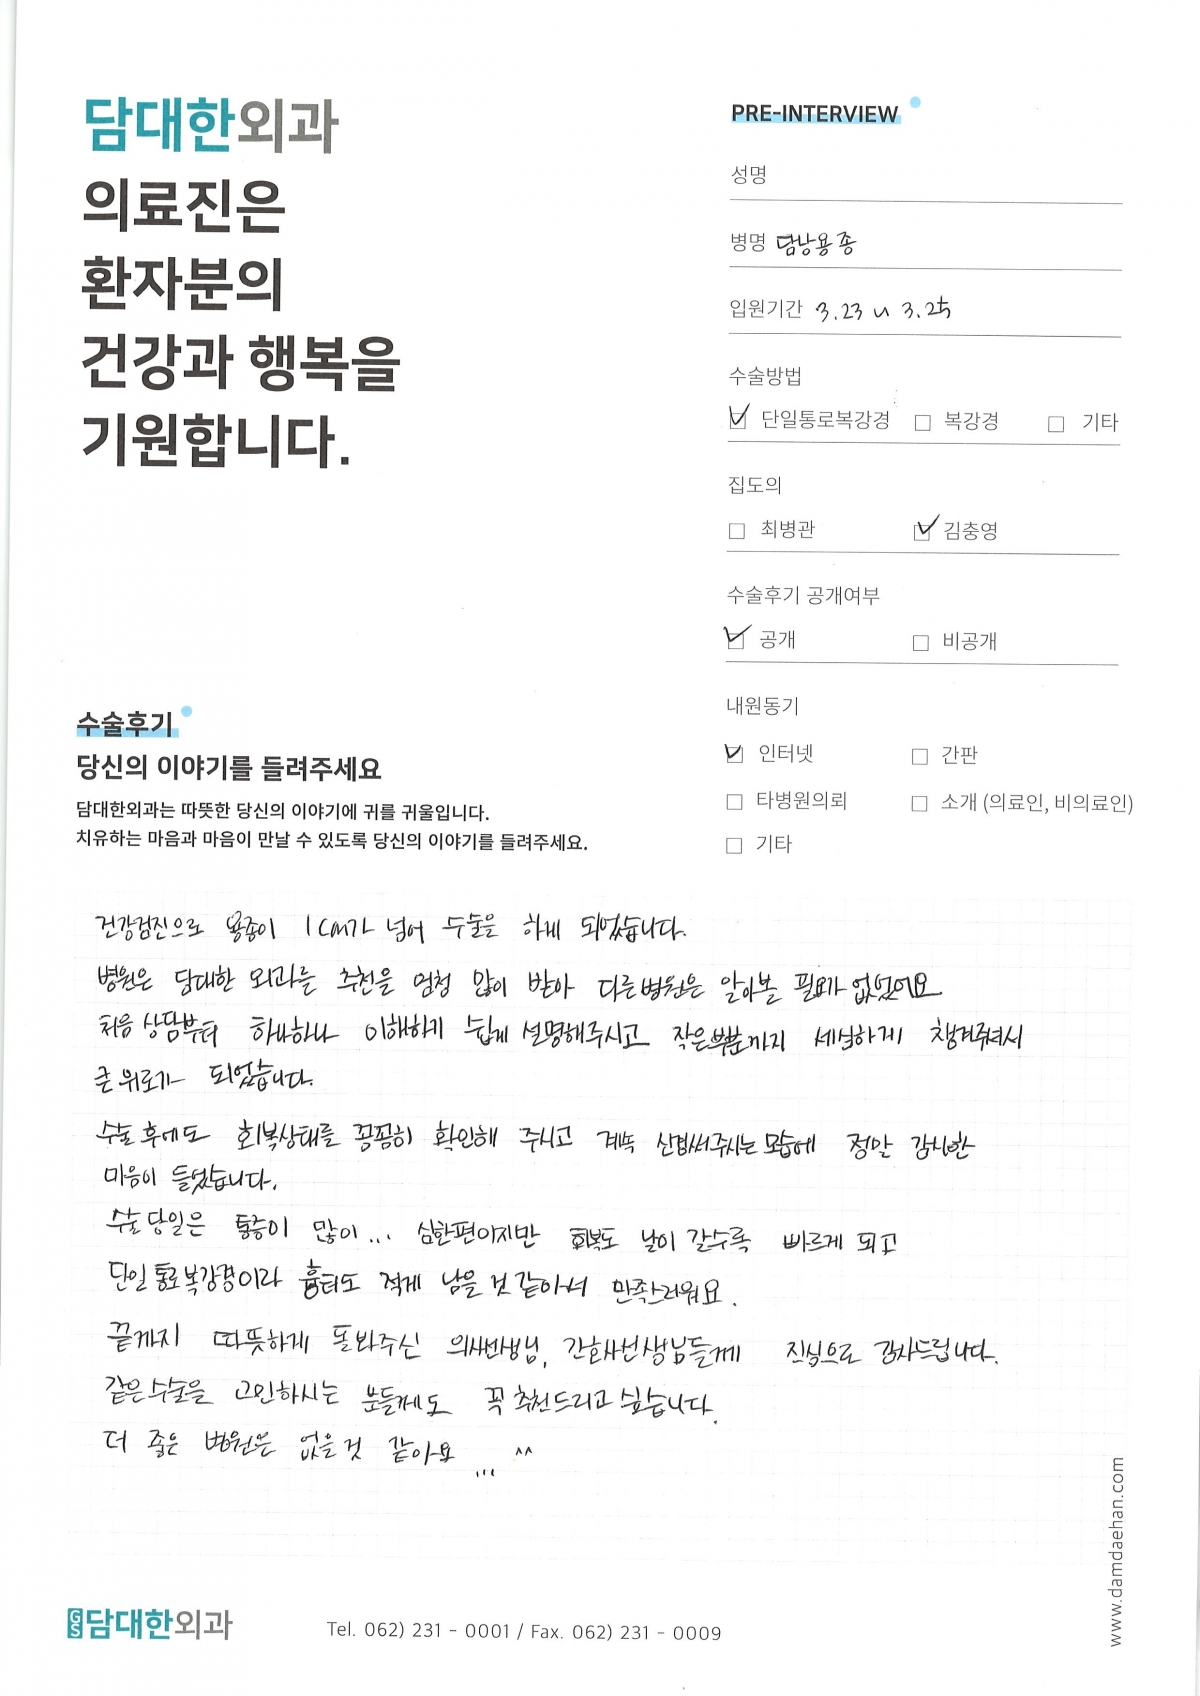 담대한외과
의료진은
환자분의
건강과 행복을
기원합니다.
PRE-INTERVIEW
성명
병명 담낭용종
입원기간 3.23 ~ 3.25
수술방법
☑ 단일통로복강경 □ 복강경 □ 기타
집도의
□ 최병관 ☑ 김충영
수술후기 공개여부
☑ 공개 □ 비공개
내원동기
☑ 인터넷 □ 간판
□ 타병원의뢰 □ 소개 (의료인, 비의료인)
□ 기타
수술후기
당신의 이야기를 들려주세요
담대한외과는 따뜻한 당신의 이야기에 귀를 귀울입니다.
치유하는 마음과 마음이 만날 수 있도록 당신의 이야기를 들려주세요.
건강검진으로 용종이 1cm가 넘어 수술을 하게 되었습니다.
병원은 담대한 외과를 추천을 엄청 많이 받아 다른병원은 알아볼 필요가 없었어요
처음 상담부터 하나하나 이해하기 쉽게 설명해주시고 작은부분까지 세심하게 챙겨주셔서
큰 위로가 되었습니다.
수술 후에도 회복상태를 꼼꼼히 확인해 주시고 계속 신경써주시는 모습에 정말 감사한
마음이 들었습니다.
수술 당일은 통증이 많이... 심한편이지만 회복도 날이 갈수록 빠르게 되고
단일통로복강경이라 흉터도 적게 남을 것 같아서 만족스러워요.
끝까지 따뜻하게 돌봐주신 의사선생님, 간호사선생님들께 진심으로 감사드립니다.
같은수술을 고민하시는 분들께도 꼭 추천드리고 싶습니다.
더 좋은 병원은 없을것 같아요 ... ^^
GS 담대한외과
Tel. 062) 231 - 0001 / Fax. 062) 231 - 0009
www.damdaehan.com